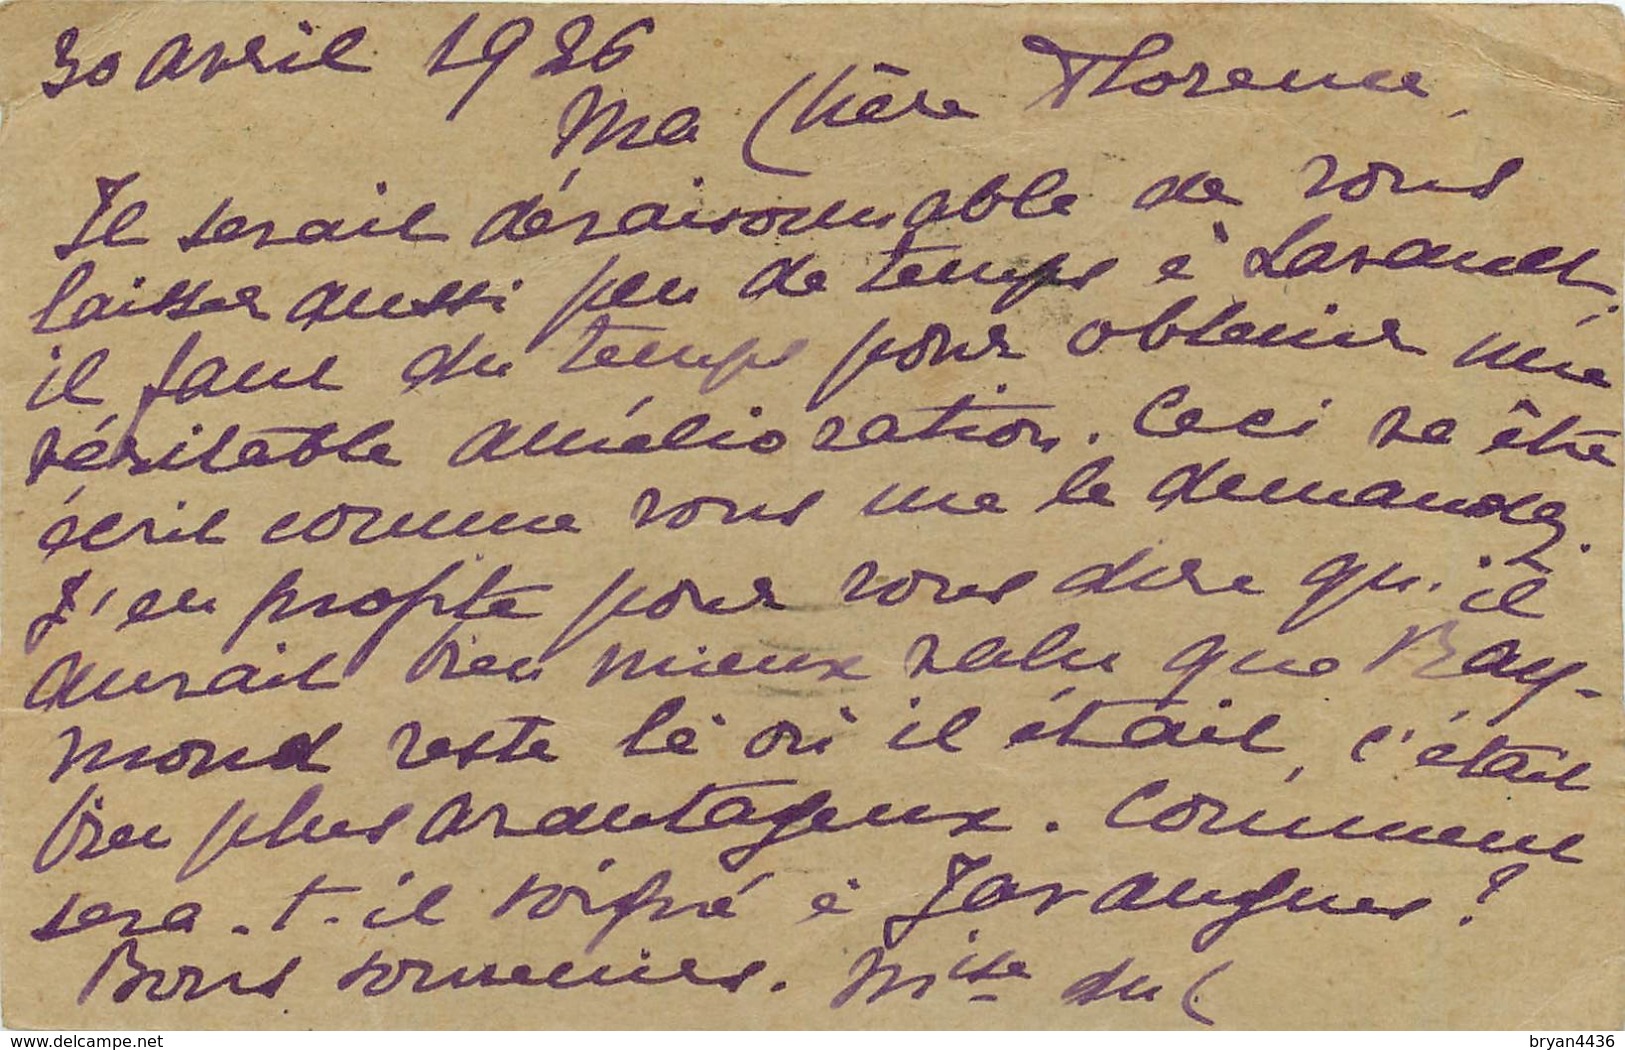 30 avril 1926
Ma Chère Florence,
Il serait déraisonnable de vous
laisser aussi peu de temps à Lavault,
il faut du temps pour obtenir une
véritable amélioration. Ceci va être
écrit comme vous me le demandez.
J'en profite pour vous dire qu'il
aurait bien mieux valu que Ray-
mond reste là où il était, c'était
bien plus avantageux. Comment
sera-t-il soigné à Javaugues ?
Bons souvenirs. Mise du C
delcampe.net
bryan4436